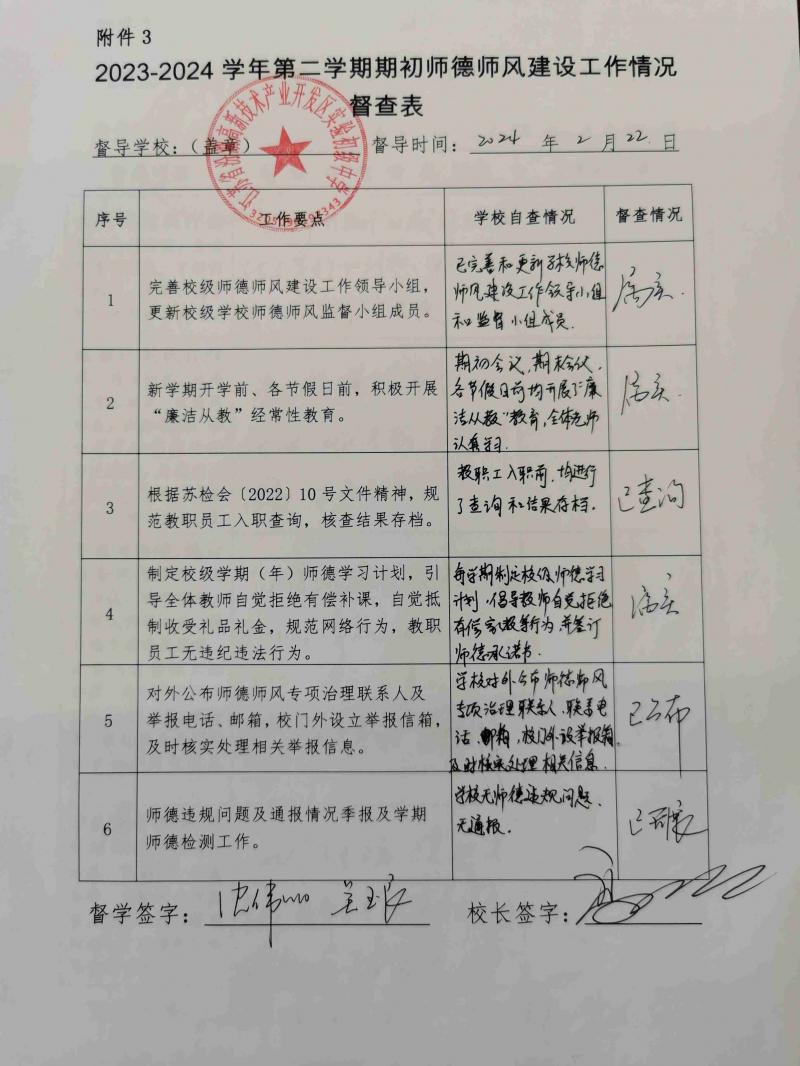 附件 3
2023-2024 学年第二学期期初师德师风建设工作情况
督查表
督导学校：（盖章） 督导时间： 2024 年 2 月 22 日
高新技术产业开发区实验初级中学
序号 工作要点 学校自查情况 督查情况
1
完善校级师德师风建设工作领导小组，
更新校级学校师德师风监督小组成员。
已完善和更新学校师德
师风建设工作领导小组
和监督小组成员.
2
新学期开学前、各节假日前，积极开展
“廉洁从教”经常性教育。
期初会议，期末会议，
各节假日前均开展了“廉
洁从教”教育，全体老师
认真学习.
3
根据苏检会〔2022〕10 号文件精神，规
范教职员工入职查询，核查结果存档。
教职工入职前，均进行
了查询和结果存档.
已查询
4
制定校级学期（年）师德学习计划，引
导全体教师自觉拒绝有偿补课，自觉抵
制收受礼品礼金，规范网络行为，教职
员工无违纪违法行为。
每学期制定校级师德学习
计划，倡导教师自觉拒绝
有偿家教等行为 并签订
师德承诺书.
5
对外公布师德师风专项治理联系人及
举报电话、邮箱，校门外设立举报信箱，
及时核实处理相关举报信息。
学校对外公布师德师风
专项治理联系人、联系电
话、邮箱，校门外设举报箱.
及时核实处理相关信息.
已公布
6
师德违规问题及通报情况季报及学期
师德检测工作。
学校无师德违规问题、
无通报.
督学签字：
校长签字：